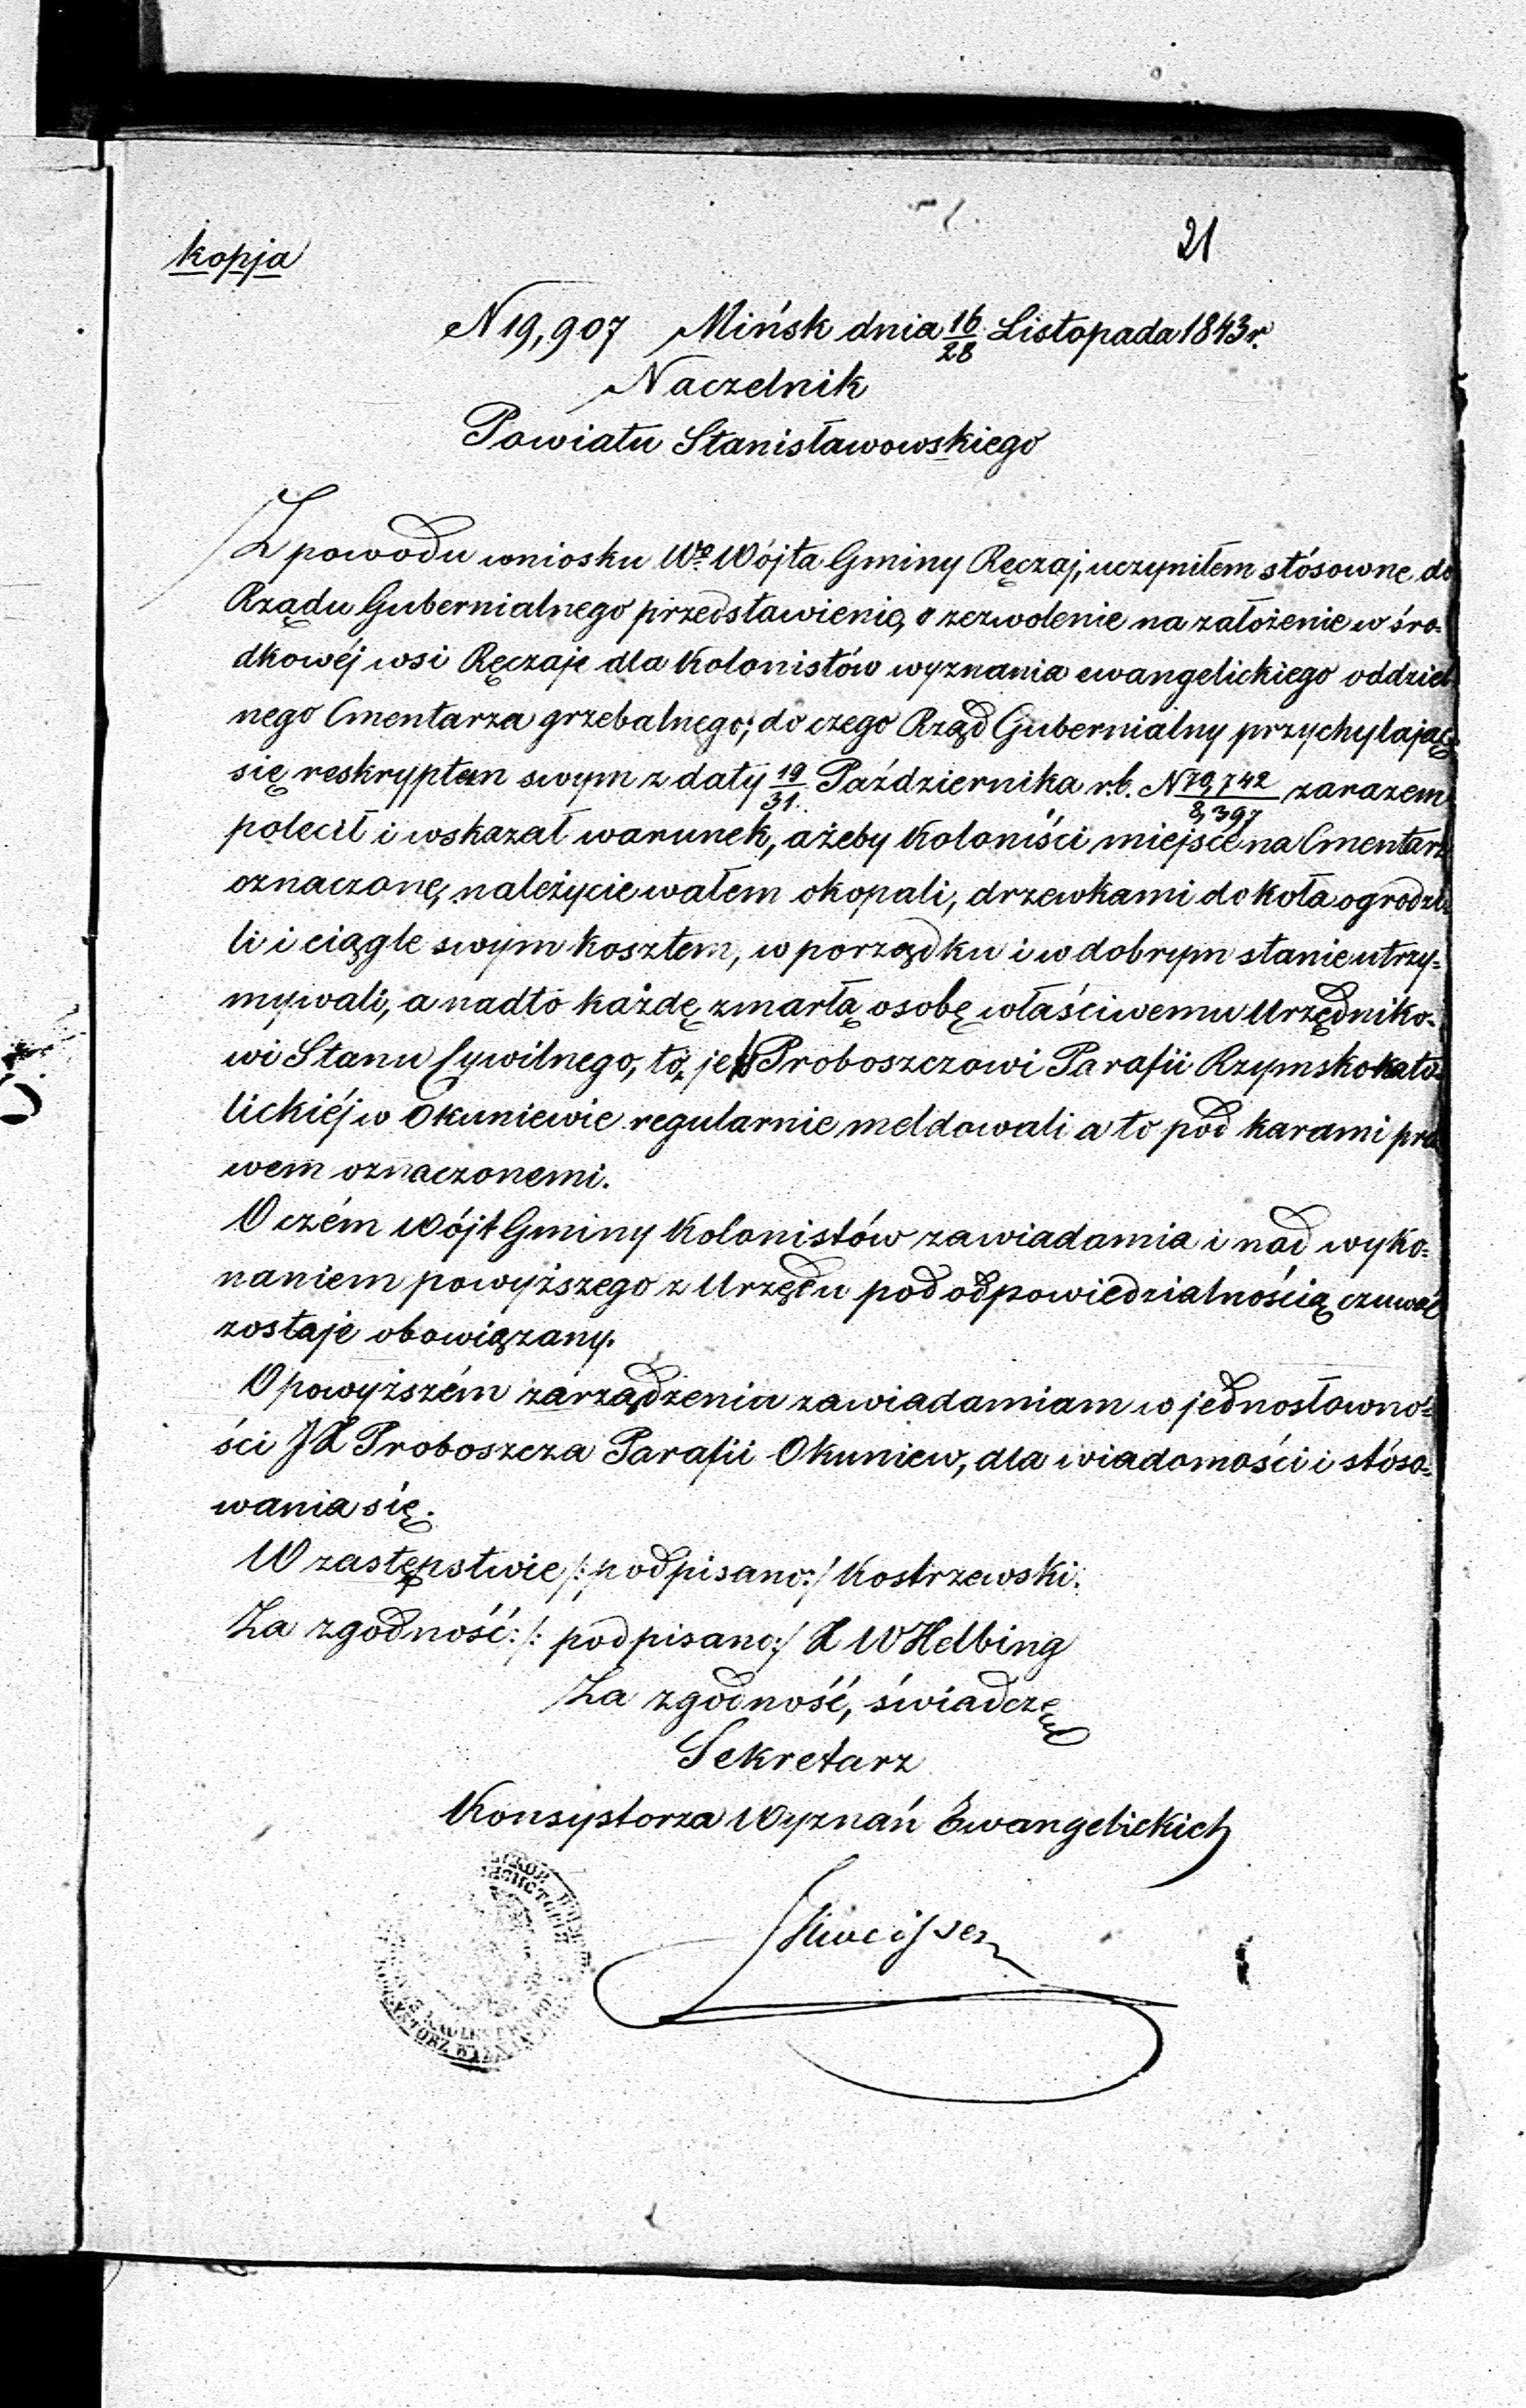 21
kopja
N 19,907 Mińsk dnia 16/28 Listopada 1843 r.
Naczelnik
Powiatu Stanisławowskiego
Z powodu wniosku Wo Wójta Gminy Ręczaj, uczyniłem stósowne do
Rządu Gubernialnego przedstawienie, o zezwolenie na założenie w śro-
dkowéj wsi Ręczaje dla Kolonistów wyznania ewangelickiego oddziel
nego Cmentarza grzebalnego; do czego Rząd Gubernialny przychylając
się reskryptem swym z daty 19/31. Października r.b. N 70,742/8,397 zarazem
polecił i wskazał warunek, ażeby Koloniści miejsce na Cmentarz
oznaczone, należycie wałem okopali, drzewkami do koła ogrodzi-
li i ciągle swym kosztem, w porządku i w dobrym stanie utrzy-
mywali, a nadto każdę zmarłą osobę właściwemu Urzędniko-
wi Stanu Cywilnego, to jest Proboszczowi Parafii Rzymskokato-
lickiéj w Okuniewie regularnie meldowali a to pod karami pra
wem oznaczonemi.
O czém Wójt Gminy Kolonistów zawiadamia i nad wyko-
naniem powyższego z Urzędu pod odpowiedzialnością czuwać
zostaje obowiązany.
O powyższém zarządzeniu zawiadamiam w jednosłowno-
ści JX Proboszcza Parafii Okuniew, dla wiadomości i stóso-
wania się.
W zastępstwie /:podpisano:/ Kostrzewski.
Za zgodność: /: podpisano:/ X W Helbing
Za zgodność, świadczę
Sekretarz
Konsystorza Wyznań Ewangelickich